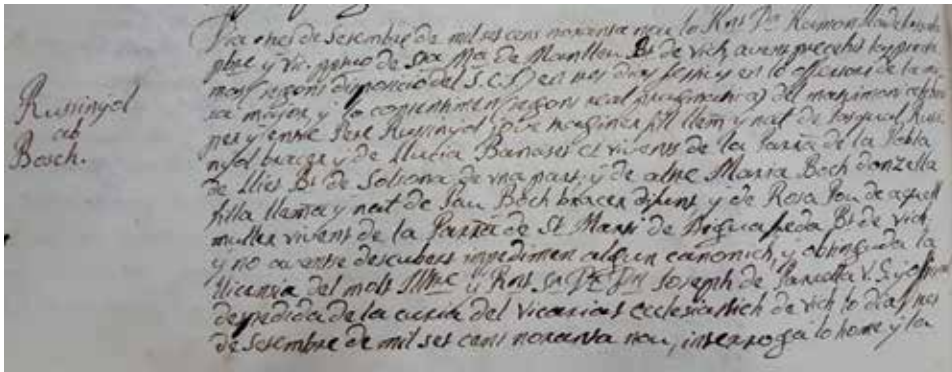 Russinyol
ab
Bosch.
Dia ones de Setembre de mil sis cens noranta nou lo Rnt Pr. Ramon
pbre y vic. de Sta Ma de Manlleu Bt de vich, avent precehit las
mons segons disposició del S.C. en tres dias festius en lo offertori de la mi
sa major, y lo consentiment segons real pragmatica del matrimoni
per y entre Pere Russinyol jove fill llem y nat de Pasqual Russi
nyol bracer y de Llucia vivents de la Parra de la Pobla
de Llies Bt de Solsona de una part, y de altre Maria Boch donzella
filla llema y nat de Pau Boch bracer difunt y de Rosa Pou de aquell
muller vivent de la Parra de St Marti de Bt de vich,
y no avente descubert impediment algun canonich, y obtinguda la
llicencia del molt Illtre y Rnt Joseph de V. G. y
expedida de la curia del Vicariat ecclesiastich de vich lo dia tres
de Setembre de mil sis cens noranta nou, interroga lo home y la